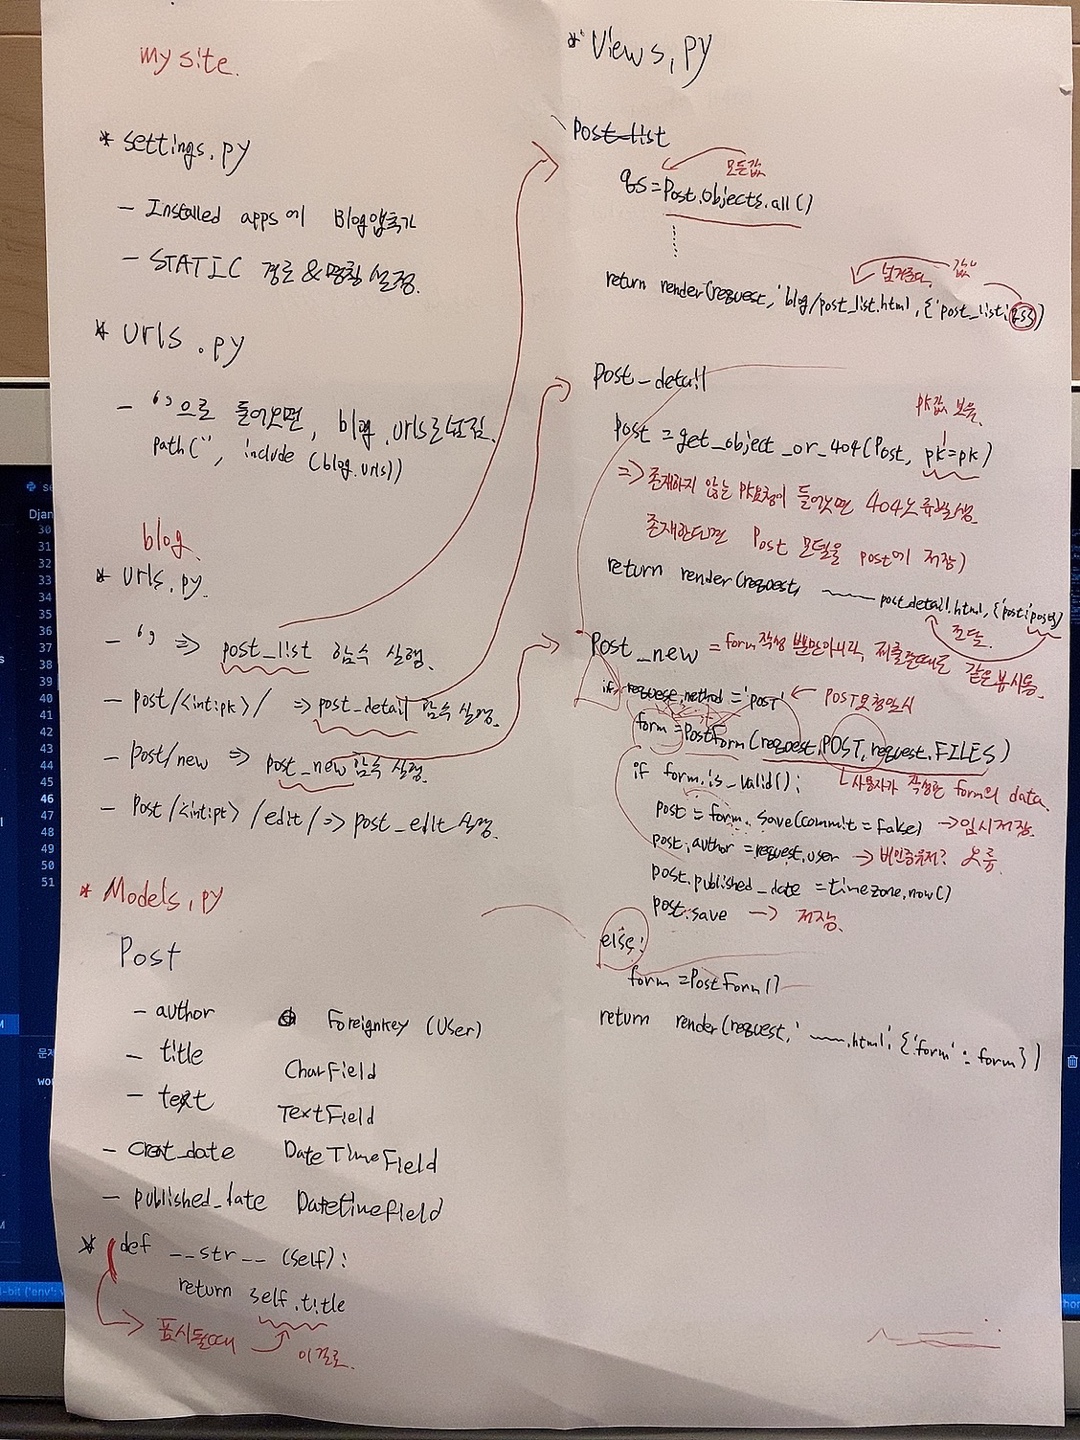 my site.
* settings.py
- Installed apps에 Blog앱추가
- STATIC 경로 & 명칭 설정.
* urls.py
- ''으로 들어오면, blog.urls로 넘김.
path('', include (blog.urls))
blog.
* urls.py.
- '' => post_list 함수 실행.
- post/<int:pk>/ => post_detail 함수 실행.
- post/new => post_new 함수 실행.
- Post/<int:pk>/edit/=> post_edit 실행.
* Models.py
Post
- author Foreignkey (User)
- title CharField
- text TextField
- creat_date DateTimeField
- published_date DateTimeField
* def __str__ (self):
return self.title
표시될때 이걸로.
* Views.py
Post_list
모든값
qs=Post.objects.all()
넘겨준다. 값
return render(request, 'blog/post_list.html, {'post_list': qs})
post_detail
pk값 보유.
post = get_object_or_404(Post, pk=pk)
=> 존재하지 않는 PK요청이 들어오면 404오류발생.
존재한다면 Post 모델을 post에 저장)
return render(request, post_detail.html, {'post': post})
전달.
Post_new = form 작성 뿐만아니라, 제출할때도 같은뷰사용.
if request.method = 'post' <- POST요청일시
form = PostForm (request.POST, request.FILES)
if form.is_valid(): 사용자가 작성한 form의 data.
post = form.save(commit = False) → 임시저장.
post.author = request.user → 비인증유저? 오류.
post.published_date = timezone.now()
post.save → 저장.
else:
form = PostForm()
return render(request, ' .html', {'form' : form})